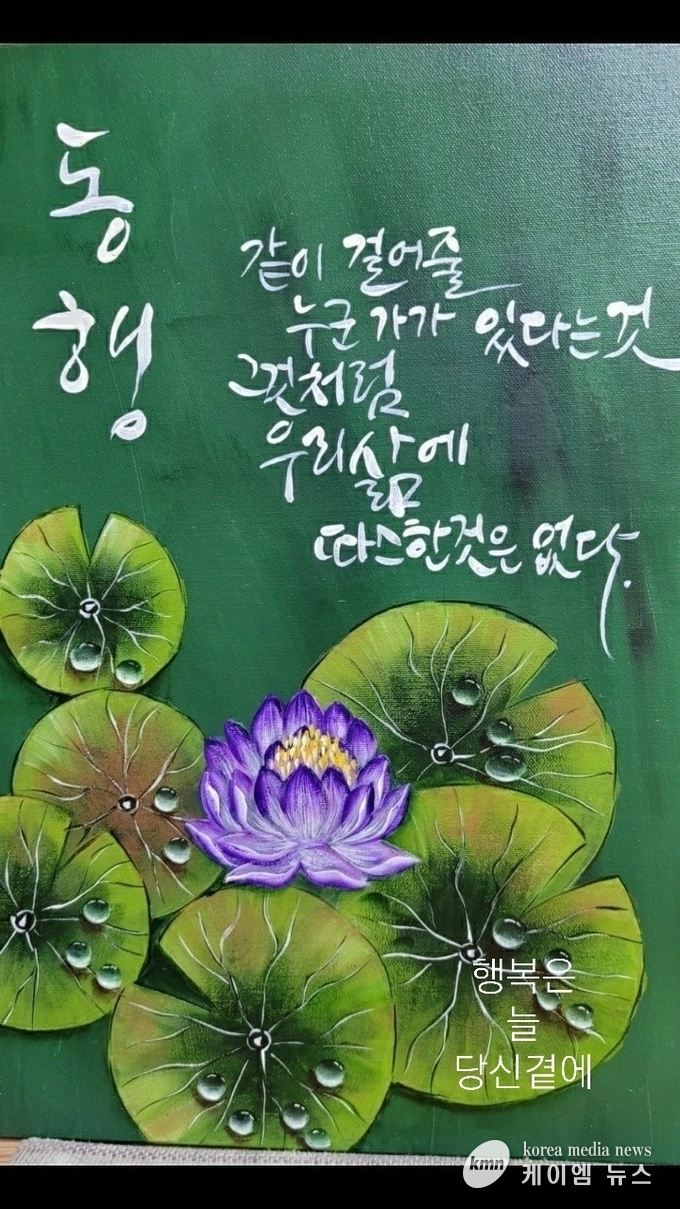 동행
같이 걸어줄
누군가가 있다는것
그것처럼
우리삶에
따스한것은 없다.
행복은
늘
당신곁에
kmn
korea media news
케이엠 뉴스